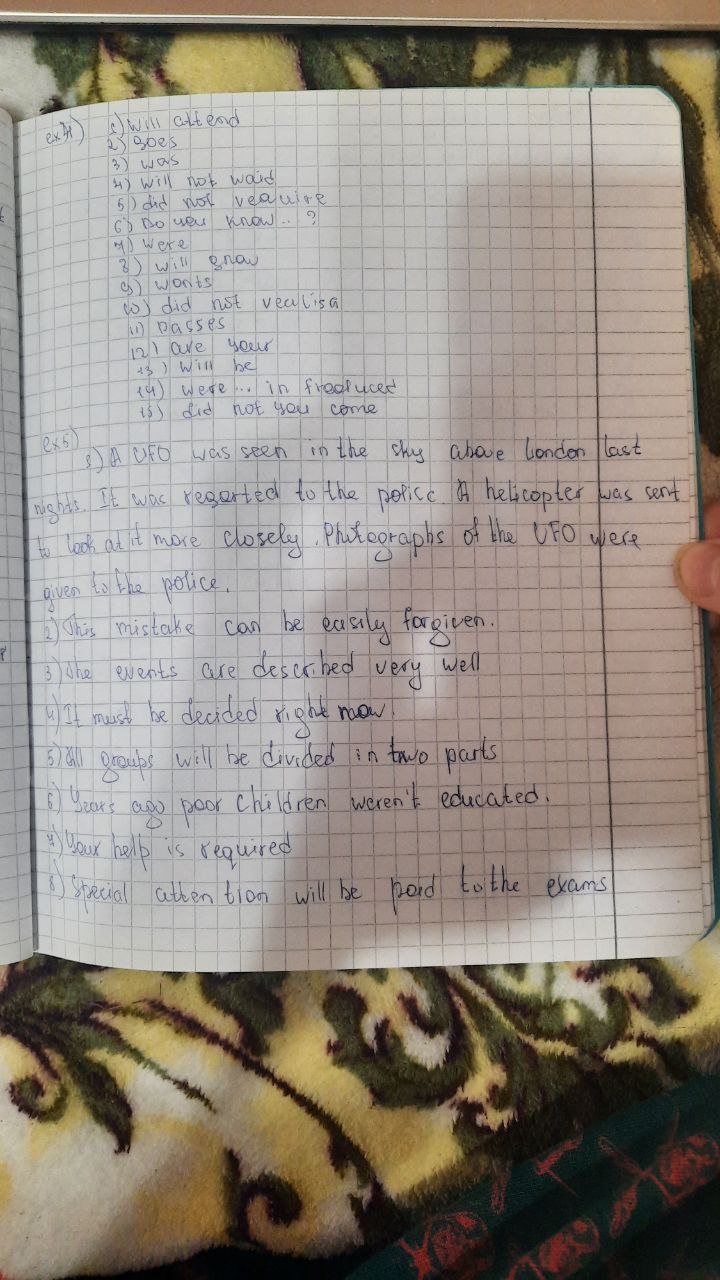 ex4) 1) will attend
2) goes
3) was
4) will not waid
5) did not veauire
6) Do you know... ?
7) were
8) will grow
9) wants
10) did not vealisa
11) passes
12) are your
13) will be
14) were ... in froduced
15) did not you come
ex5)
1) A UFO was seen in the sky above London last
nights. It was regorted to the police A helicopter was sent
to look at it more closely. Photographs of the UFO were
given to the police.
2) This mistake can be easily forgiven.
3) The events are described very well
4) It must be decided right now.
5) All groups will be divided in two parts
6) Years ago poor children weren't educated.
7) Your help is required
8) Special attention will be paid to the exams